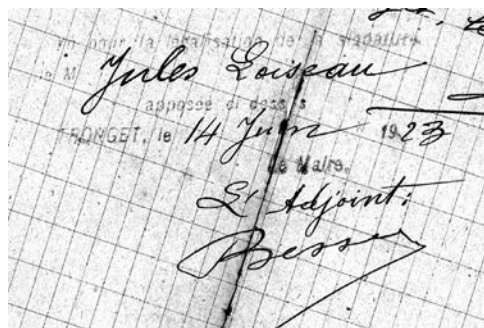 Vu pour la légalisation de la signature
de M Jules Loiseau
apposée ci dessus
TRONGET, le 14 Juin 1923
Le Maire,
L'Adjoint:
Besse